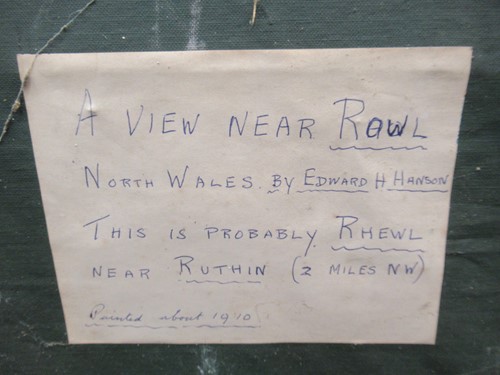 A VIEW NEAR ROWL
NORTH WALES. BY EDWARD H HANSON
THIS IS PROBABLY RHEWL
NEAR RUTHIN (2 MILES NW)
Painted about 1910